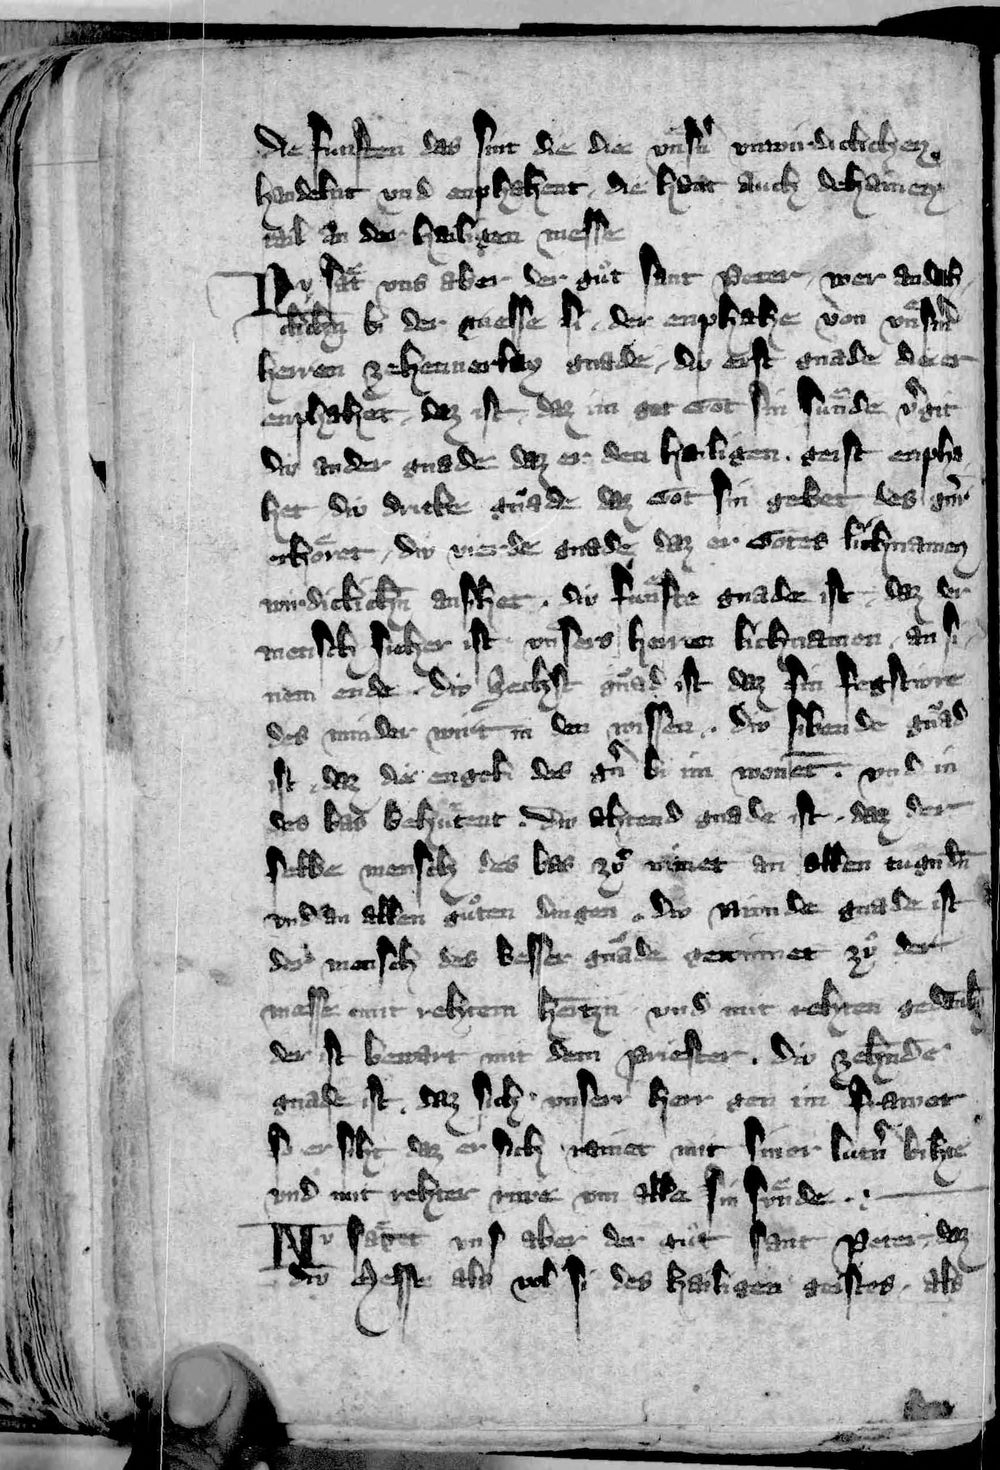 die funften daz sint die die unsern unwirdiclichen
handelnt und enphahent. die hant auch dehainen
tail an der hailigen messe
Nv sāt uns aber der gůt sant Peter. wer andah
ticlichn bi der messe si. der enphahe von unserm
herren zehennerlay gnade. div erst gnade die er
enphahet. daz ist. daz im got Got sin sunde vͤgit
div ander gnade daz er den hailigen. geist enpha
het. div dritte gnade daz Got sin gebet des gern
erhoͤret. div vierde gnade daz er Gotes lichnamen
wirdiclichn ansihet. div funfte gnade ist. daz der
mensch sicher ist unsers herren lichnamen. an si
nem ende. div sechst gnad ist daz sin fegfiwre
des minder wirt in den wissen. div sibende gnad
ist. daz die engeli des gern bi im wonet. und in
des bas behuͤtent. Div ahtend gnade ist. daz der
selbe mensch des bas zů nimet an allen tugndn
und an allen guͦten dingen. div Niunde gnade ist
der mensch des besser gnade gewinnet zů der
messe mit rehtem hertzn und mit rehten gedank
der ist bewart mit dem priester. div zehnde
gnade ist. daz sich unserr herr gen im frawet
so er siht daz er sich rainet mit siner lutern bihte
und mit rehter riwe um alle sin sunde.
Nv saget uns aber der gůt sant Peter. daz
div Messe als vol si des hailigen geistes. als